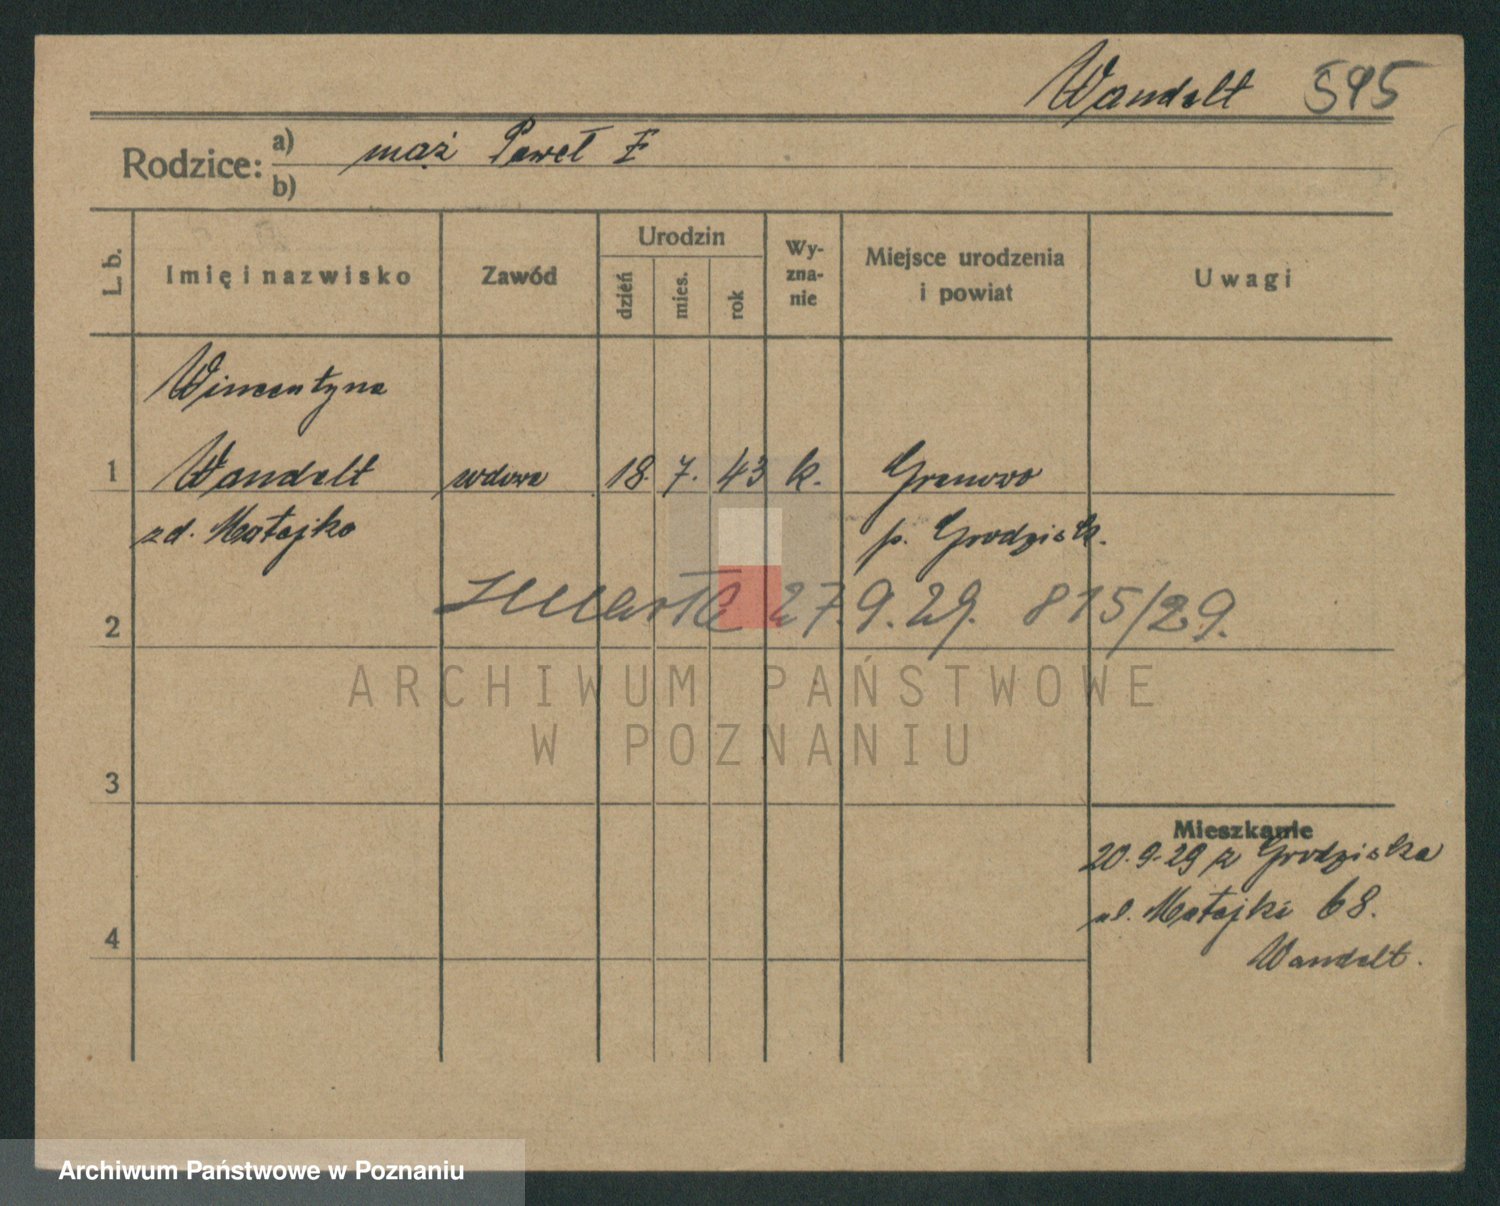 Wandelt 595
Rodzice: a) mąż Paweł F
b)
L. b. Imię i nazwisko Zawód Urodzin dzień mies. rok Wy-zna-nie Miejsce urodzenia i powiat Uwagi
Wincentyna
1 Wandelt wdowa 18. 7. 43 k. Granowo
zd. Matajko p. Grodzisk.
2 Zmarła 27.9.29. 815/29.
ARCHIWUM PAŃSTWOWE
W POZNANIU
3
Mieszkanie
20.9.29 z Grodziska
ul. Matejki 68.
4 Wandelt.
Archiwum Państwowe w Poznaniu